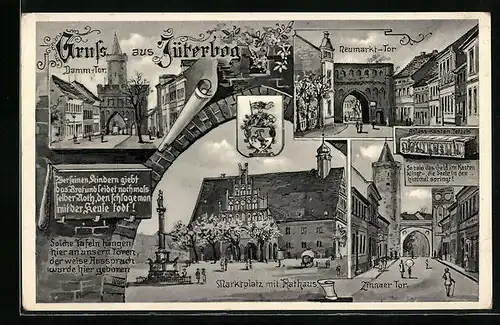 Gruss aus Jüterbog
Damm-Tor.
Neumarkt-Tor
Ablass-Kasten Tetzels
So wie das Geld im Kasten
klingt, die Seele in den
Himmel springt!
Wer seinen Kindern giebt
das Brot und leidet nachmals
selber Noth, den schlage man
mit der Keule todt!
Solche Tafeln hängen
hier an unsern Toren,
der weise Ausspruch
wurde hier geboren
Marktplatz mit Rathaus
Zinnaer Tor.